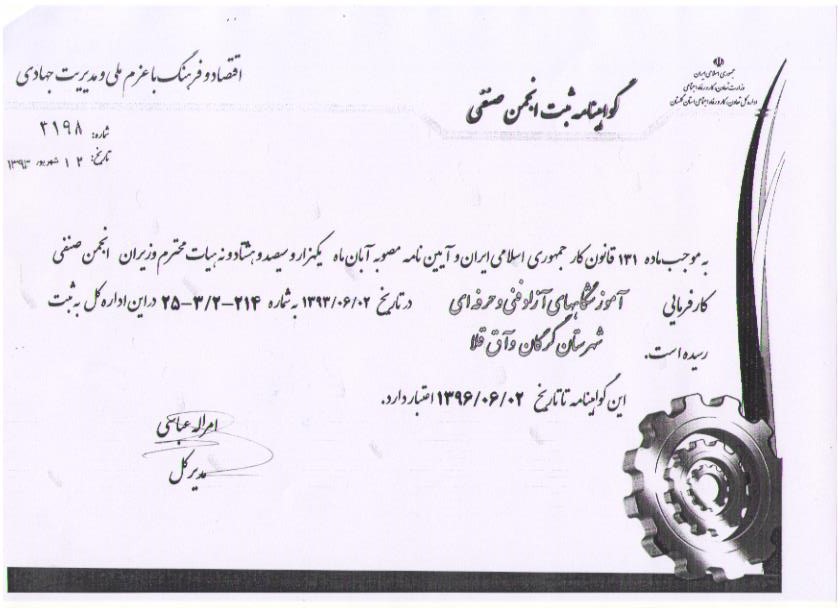 جمهوری اسلامی ایران
وزارت تعاون، کار و رفاه اجتماعی
اداره کل تعاون، کار و رفاه اجتماعی استان گلستان
اقتصاد و فرهنگ با عزم ملی و مدیریت جهادی
گواهینامه ثبت انجمن صنفی
شماره: ۳۱۹۸
تاریخ: ۱۲ شهریور ۱۳۹۳
به موجب ماده ۱۳۱ قانون کار جمهوری اسلامی ایران و آیین نامه مصوبه آبان ماه یکهزار و سیصد و هشتاد و نه هیات محترم وزیران انجمن صنفی
کارفرمایی آموزشگاههای آزاد فنی و حرفه ای در تاریخ ۱۳۹۳/۰۶/۰۲ به شماره ۲۱۴-۳/۲-۲۵ در این اداره کل به ثبت
شهرستان گرگان و آق قلا
رسیده است.
این گواهینامه تا تاریخ ۱۳۹۶/۰۶/۰۲ اعتبار دارد.
امراله عباسی
مدیر کل